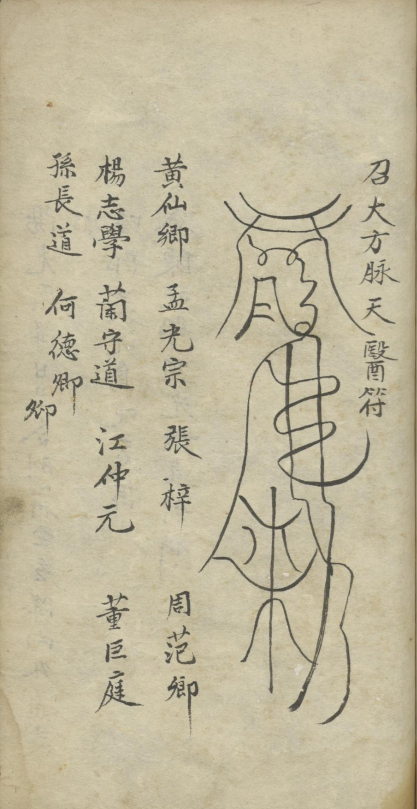 召大方脉天醫符
黄仙卿 孟光宗 張梓 周范卿
楊志學 蕳守道 江仲元 董巨庭
孫長道 何德卿
卿